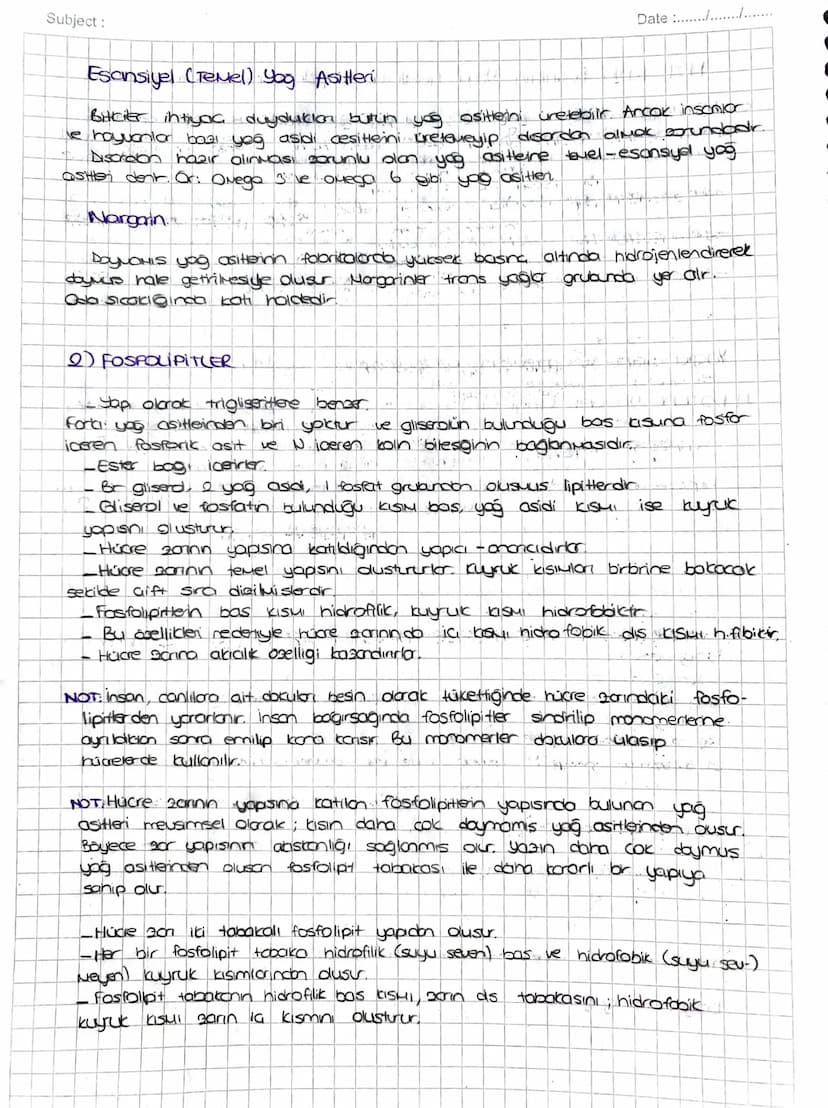 Subject :
Date :......./......./.......
Esansiyel (Temel) Yağ Asitleri
Bitkiler ihtiyaç duydukları bütün yağ asitlerini üretebilir. Ancak insanlar
ve hayvanlar bazı yağ asidi çeşitlerini üretemeyip dışardan almak zorundadır.
Dışardan hazır alınması zorunlu olan yağ asitlerine temel-esansiyel yağ
asitleri denir. Ör: Omega 3 ve omega 6 gibi yağ asitleri
Margarin
Doymamış yağ asitlerinin fabrikalarda yüksek basınç altında hidrojenlendirerek
doymuş hale getirilmesiyle oluşur. Margarinler trans yağlar grubunda yer alır.
Oda sıcaklığında katı haldedir.
2) FOSFOLİPİTLER
- Yapı olarak trigliseritlere benzer.
Farkı: yağ asitlerinden biri yoktur ve gliserolün bulunduğu baş kısmına fosfor
içeren fosforik asit ve N içeren kolin bileşiğinin bağlanmasıdır.
- Ester bağı içerirler.
- Bir gliserol, 2 yağ asidi, 1 fosfat grubundan oluşmuş lipitlerdir.
- Gliserol ve fosfatın bulunduğu kısım baş, yağ asidi kısmı ise kuyruk
yapısını oluşturur.
- Hücre zarının yapısına katıldığından yapıcı-onarıcıdırlar.
- Hücre zarının temel yapısını oluştururlar. Kuyruk kısımları birbirine bakacak
şekilde çift sıra dizilmişlerdir.
- Fosfolipitlerin baş kısmı hidrofilik, kuyruk kısmı hidrofobiktir.
- Bu özellikleri nedeniyle hücre zarınında iç kısmı hidrofobik dış kısmı h.filiktir.
- Hücre zarına akıcılık özelliği kazandırırlar.
NOT: İnsan, canlılara ait dokuları besin olarak tükettiğinde hücre zarındaki fosfo-
lipitlerden yararlanır. İnsan bağırsağında fosfolipitler sindirilip monomerlerine
ayrıldıktan sonra emilip kana karışır. Bu monomerler dokulara ulaşıp
hücrelerde kullanılır.
NOT: Hücre zarının yapısına katılan fosfolipitlerin yapısında bulunan yağ
asitleri mevsimsel olarak; kışın daha çok doymamış yağ asitlerinden oluşur.
Böylece zar yapısının akışkanlığı sağlanmış olur. Yazın daha çok doymuş
yağ asitlerinden oluşan fosfolipit tabakası ile daha kararlı bir yapıya
sahip olur.
- Hücre zarı iki tabakalı fosfolipit yapıdan oluşur.
- Her bir fosfolipit tabaka hidrofilik (suyu seven) baş ve hidrofobik (suyu sev-)
meyen) kuyruk kısımlarından oluşur.
- Fosfolipit tabakanın hidrofilik baş kısmı, zarın dış tabakasını; hidrofobik
kuyruk kısmı zarın iç kısmını oluşturur.